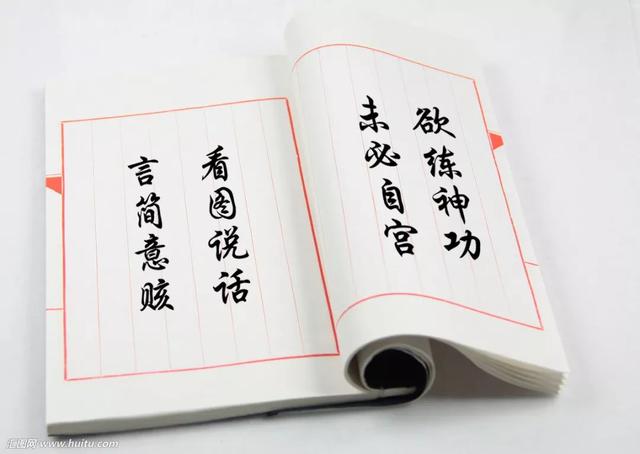 欲练神功
未必自宫
看图说话
言简意赅
汇图网 www.huitu.com